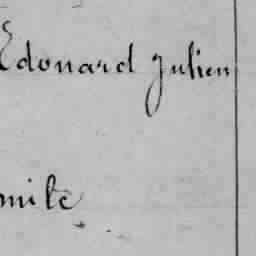 Edouard Julien
mile